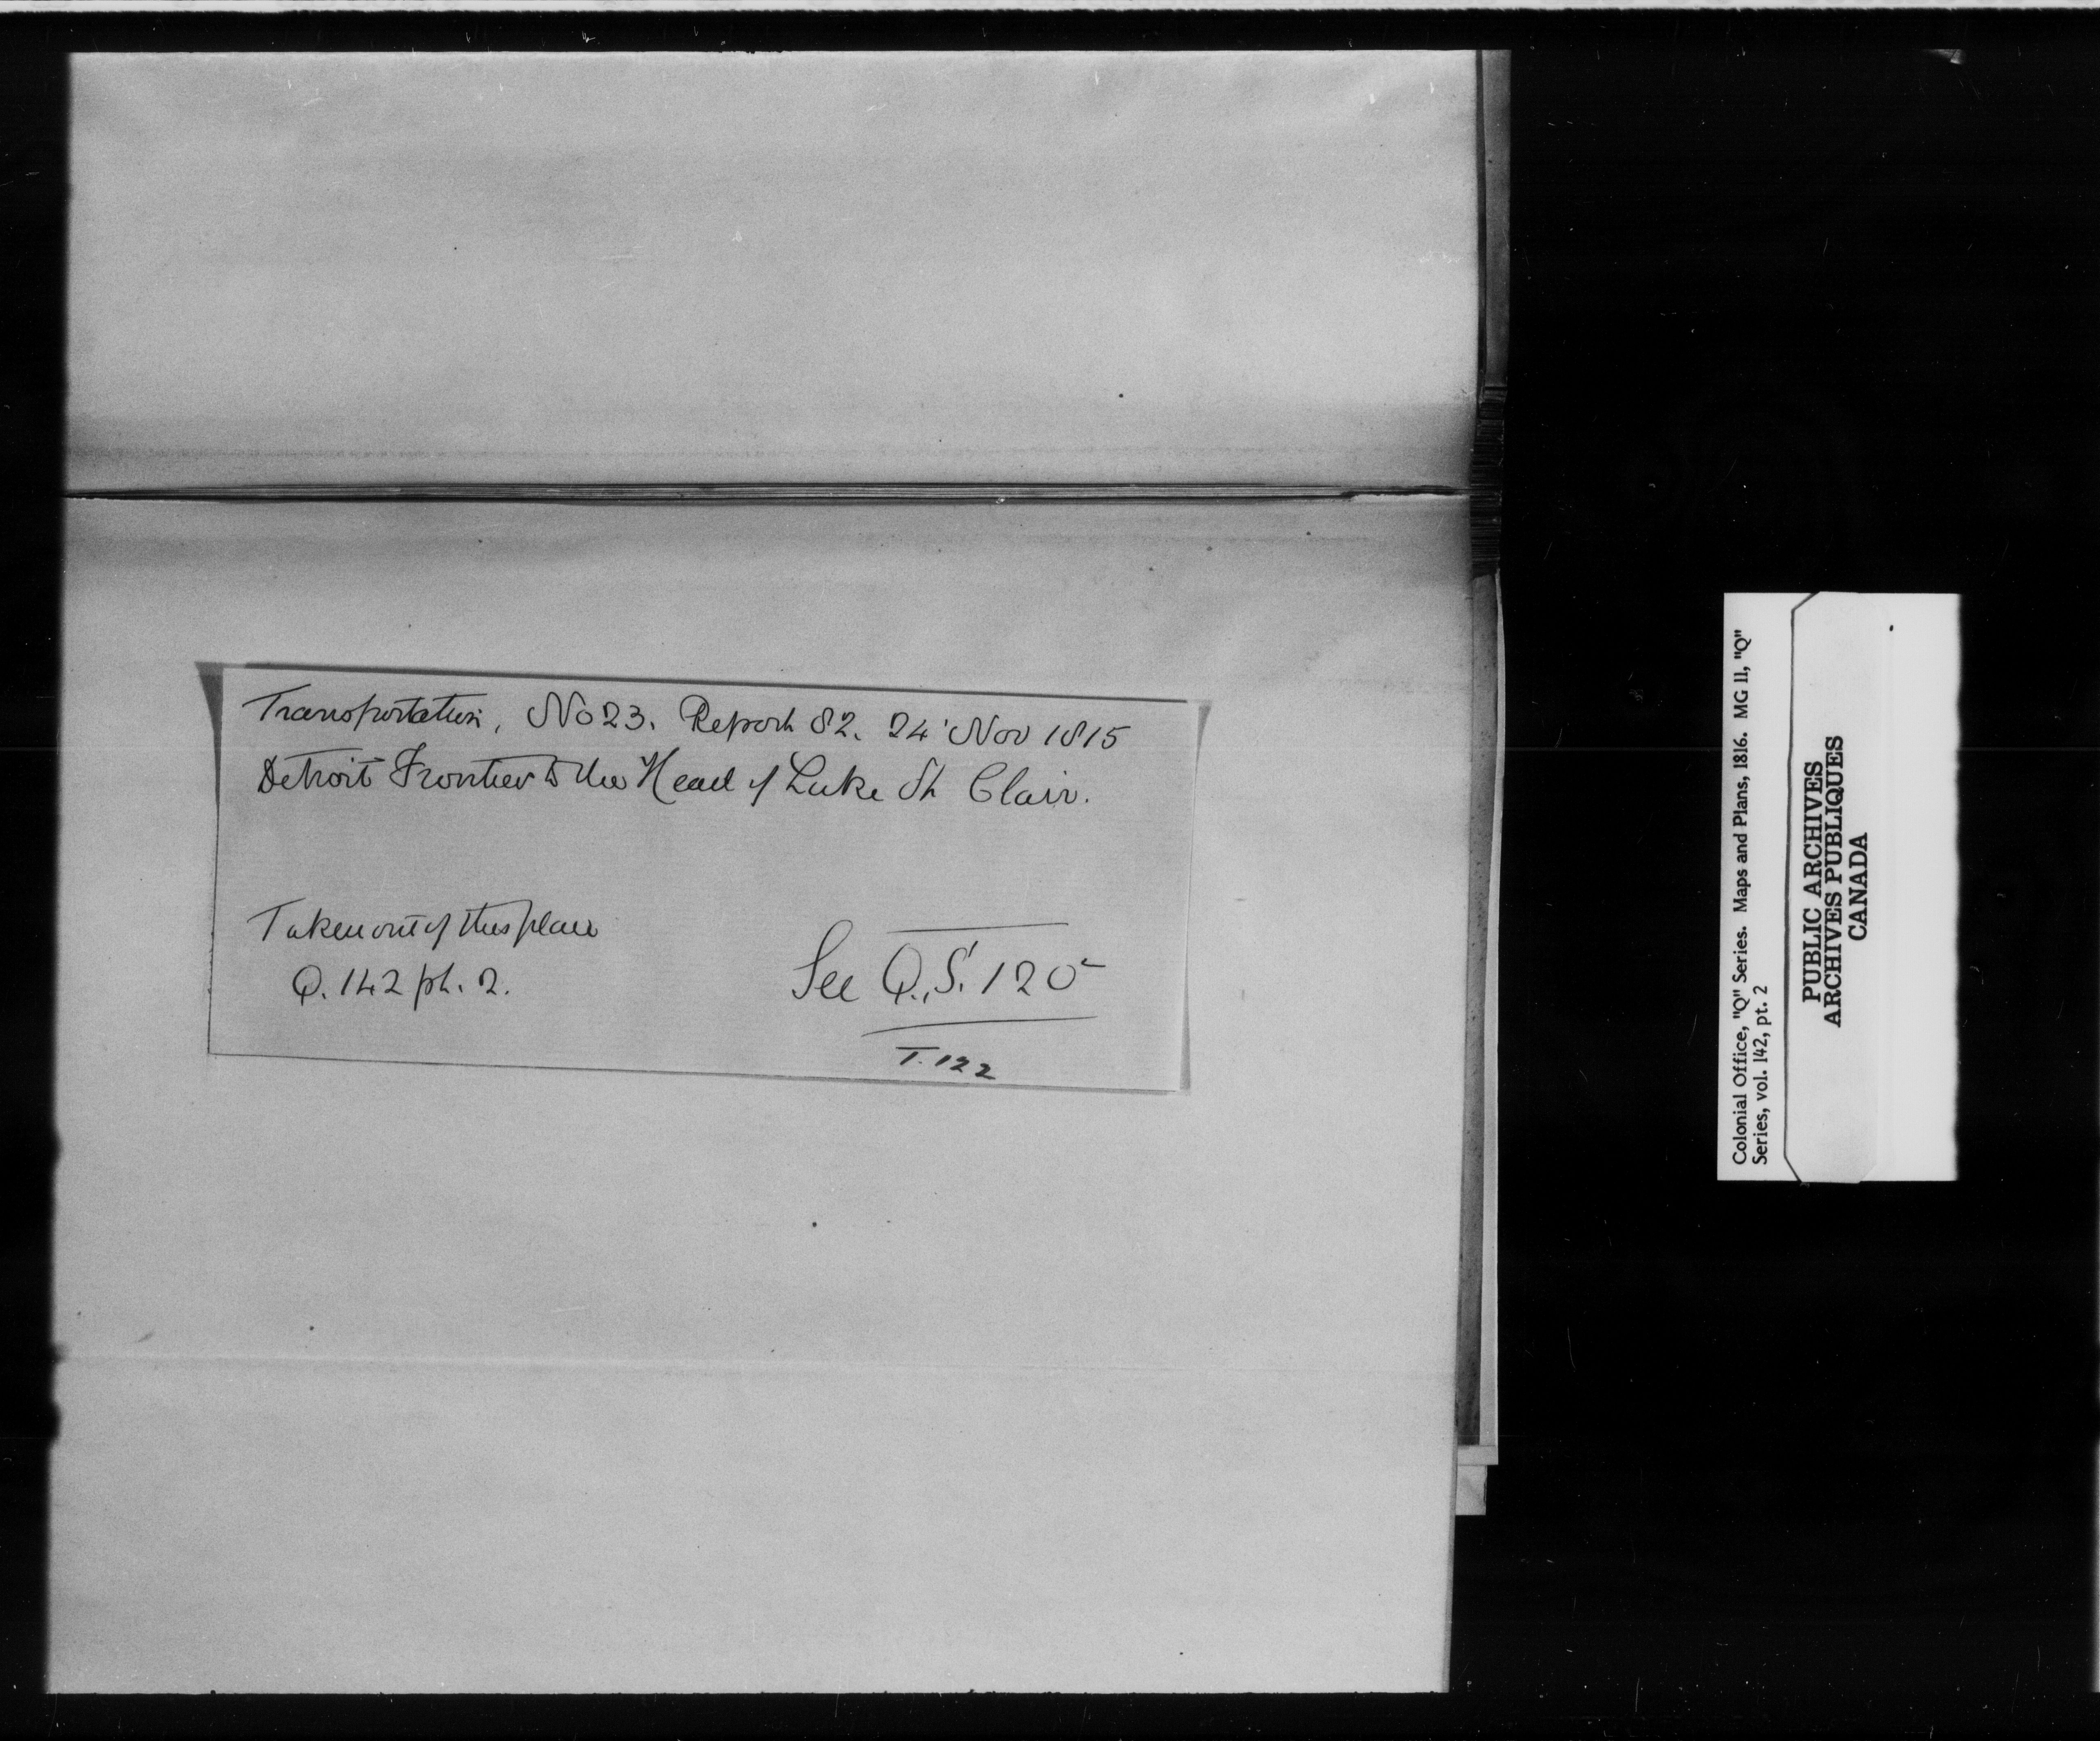 Transportation, No 23. Report 82. 24' Nov 1815
Detroit Frontier to the Head of Lake St Clair.
Taken out of this place
Q. 142 pt. 2.
See Q.S. 120
T. 122
Colonial Office, "Q" Series. Maps and Plans, 1816. MG 11, "Q"
Series, vol. 142, pt. 2
PUBLIC ARCHIVES
ARCHIVES PUBLIQUES
CANADA